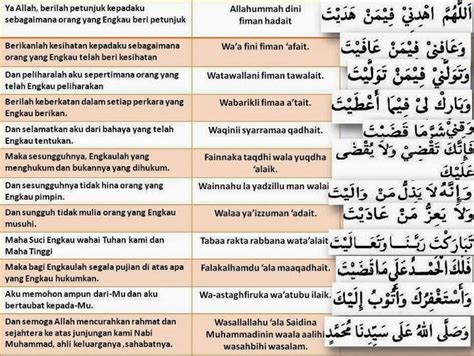 Ya Allah, berilah petunjuk kepadaku
sebagaimana orang yang Engkau beri petunjuk
Allahummah dini
fiman hadait
اَللّٰهُمَّ اهْدِنِيْ فِيْمَنْ هَدَيْتَ
Berikanlah kesihatan kepadaku sebagaimana
orang yang Engkau telah beri kesihatan
Wa'a fini fiman 'afait.
وَعَافِنِيْ فِيْمَنْ عَافَيْتَ
Dan peliharalah aku sepertimana orang yang
telah Engkau peliharakan
Watawallani fiman tawalait.
وَتَوَلَّنِيْ فِيْمَنْ تَوَلَّيْتَ
Berilah keberkatan dalam setiap perkara yang
Engkau berikan.
Wabarikli fimaa a'tait.
وَبَارِكْ لِيْ فِيْمَا أَعْطَيْتَ
Dan selamatkan aku dari bahaya yang telah
Engkau tentukan.
Waqinii syarramaa qadhait.
وَقِنِيْ شَرَّمَا قَضَيْتَ
Maka sesungguhnya, Engkaulah yang
menghukum dan bukannya yang dihukum.
Fainnaka taqdhi wala yuqdha
'alaik.
فَإِنَّكَ تَقْضِيْ وَلَا يُقْضٰى
عَلَيْكَ
Dan sesungguhnya tidak hina orang yang
Engkau pimpin.
Wainnahu la yadzillu man walait
وَإِنَّهُ لَا يَذِلُّ مَنْ وَالَيْتَ
Dan sungguh tidak mulia orang yang Engkau
musuhi.
Walaa ya'izzuman 'adait.
وَلَا يَعِزُّ مَنْ عَادَيْتَ
Maha Suci Engkau wahai Tuhan kami dan
Maha Tinggi
Tabaa rakta rabbana wata'alait
تَبَارَكْتَ رَبَّنَا وَتَعَالَيْتَ
Maka bagi Engkaulah segala pujian di atas apa
yang Engkau hukumkan.
Falakalhamdu 'ala maaqadhait.
فَلَكَ الْحَمْدُ عَلٰى مَا قَضَيْتَ
Aku memohon ampun dari-Mu dan aku
bertaubat kepada-Mu.
Wa-astaghfiruka wa'atubu ilaik.
وَأَسْتَغْفِرُكَ وَأَتُوْبُ إِلَيْكَ
Dan semoga Allah mencurahkan rahmat dan
sejahtera ke atas junjungan kami Nabi
Muhammad, ahli keluarganya ,sahabatnya.
Wasallallahu 'ala Saidina
Muhammadinin waala aalihi
wasahbihi wasalam.
وَصَلَّى اللهُ عَلٰى سَيِّدِنَا مُحَمَّدٍ